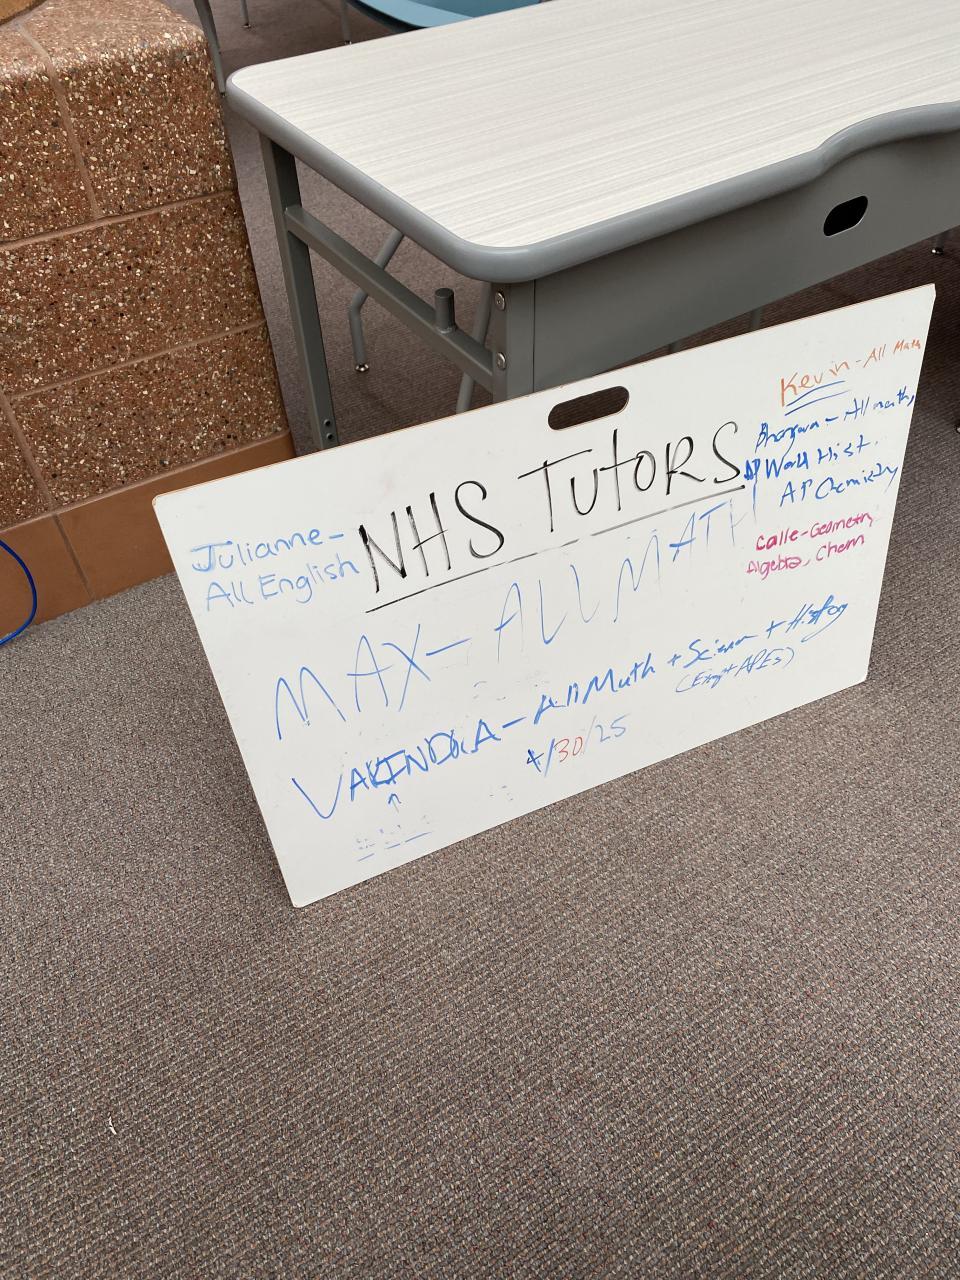 NHS TUTORS
Julianne-
All English
Kevin - All Math
- All math,
AP World Hist.
AP Chemistry
Calle-Geometry,
Algebra, Chem
MAX- ALL MATH
- All Math + Science + History
4/30/25